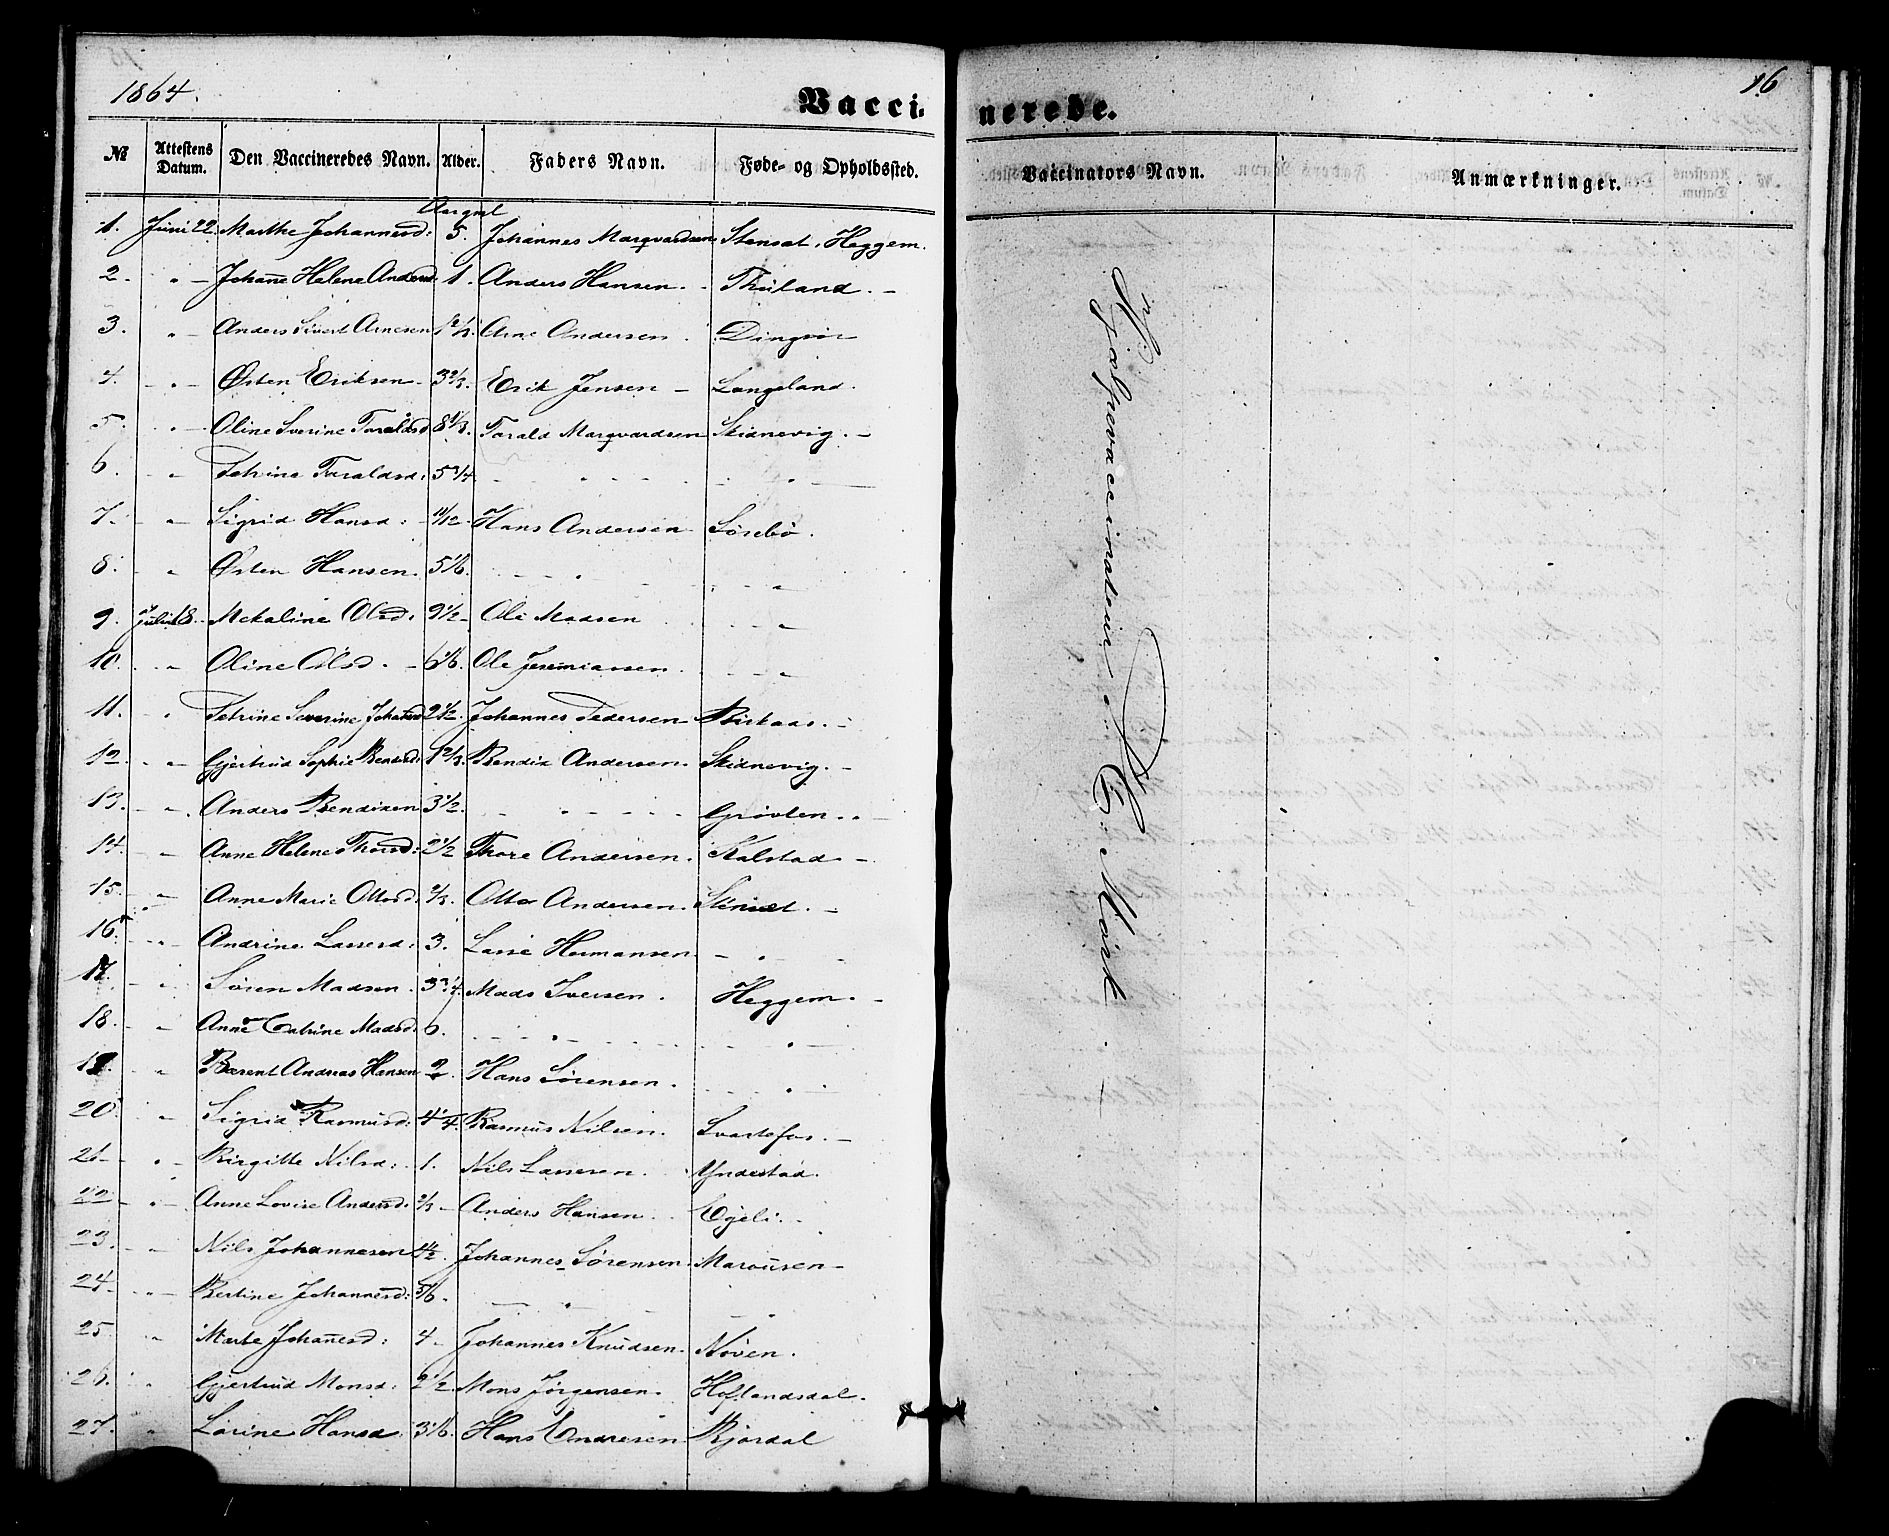 1864.
Vacci-
nerede.
16
№ Attestens Datum. Den Vaccineredes Navn. Alder. Faders Navn. Føde- og Opholdssted.
Vaccinators Navn. Anmærkninger.
1. Juni 22. Marthe Johannesd: 5. Johannes Marqvardsen Stensæt. Heggem.
2. " Johanne Helene Andersd 1. Anders Hansen. Thuland. -
3. " Anders Sivert Arnesen 1 2/3. Arne Andersen.
4. " Østen Eriksen 3 2/3. Erik Jensen Langeland.
5. " Oline Severine Taraldsd 8 1/3. Tarald Marqvardsen Skidnevig. -
6. " Petrine Taraldsd: 5 3/4 " "
7. " Sigrid Hansd: 11/12. Hans Andersen Sørebø.
8. " Østen Hansen. 5 1/6. " "
9. Juli 18. Mekaline Olsd. 9 1/2 Ole Madsen "
10. " Oline Olsd. 6 1/6. Ole Jeremiassen. "
11. " Petrine Severine Johansd 2 1/2. Johannes Pedersen Birkaas. -
12. " Gjertrud Sophie Bendixd: 1 2/3. Bendix Andersen. Skidnevig. -
13. " Anders Bendixen 3 1/2. " Grøvlen.
14. " Anne Helene Thorsd: 2 1/2 Thore Andersen. Kalstad -
15. " Anne Marie Ottosd. 2/3. Otto Andersen. Stensæt. -
16. " Andrine Lassesd. 3. Lasse Hermansen "
17. " Søren Madsen. 3 3/4. Mads Iversen. Heggem. -
18. " Anne Catrine Madsd. 6. " "
19. " Berent Andreas Hansen 2 Hans Sørensen. "
20. " Sigrid Rasmusd: 4 1/4. Rasmus Nilsen. Svartefos. -
21 " Birgitte Nilsd: 1. Nils Lassesen Yndestad.
22 " Anne Lovise Andersd. 2/3 Anders Hansen. Egeli.
23. " Nils Johannesen 4 1/2. Johannes Sørensen. Marousen -
24. " Bertine Johannesd: 5/6. " "
25 " Marte Johanesd: 4 Johannes Knudsen. Nøven.
26. " Gjertrud Monsd: 2 1/2. Mons Jørgensen. Hoflandsdal.
27. " Lorine Hansd. 3 1/6. Hans Andresen Rjordal
Hjælpevaccinateur P. E. Mørk.